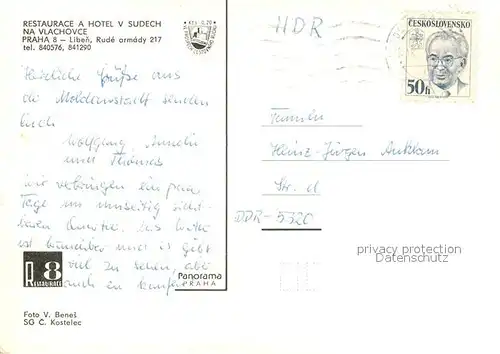 RESTAURACE A HOTEL V SUDECH
NA VLACHOVCE
PRAHA 8 — Libeň, Rudé armády 217
tel. 840576, 841290
HDR
ČESKOSLOVENSKO
50h
Herzliche Grüße aus
der Moldaustadt senden
Euch
Wolfgang,
und Thomas
Wir verbringen ein paar
Tage im umseitig sicht-
baren Quartier. Das Wetter
ist und es gibt
viel zu sehen, aber
auch zu
Familie
Heinz-Jürgen
Str. d
DDR-5320
R 8
RESTAURACE
Panorama
PRAHA
privacy protection
Datenschutz
Foto V. Beneš
SG Č. Kostelec